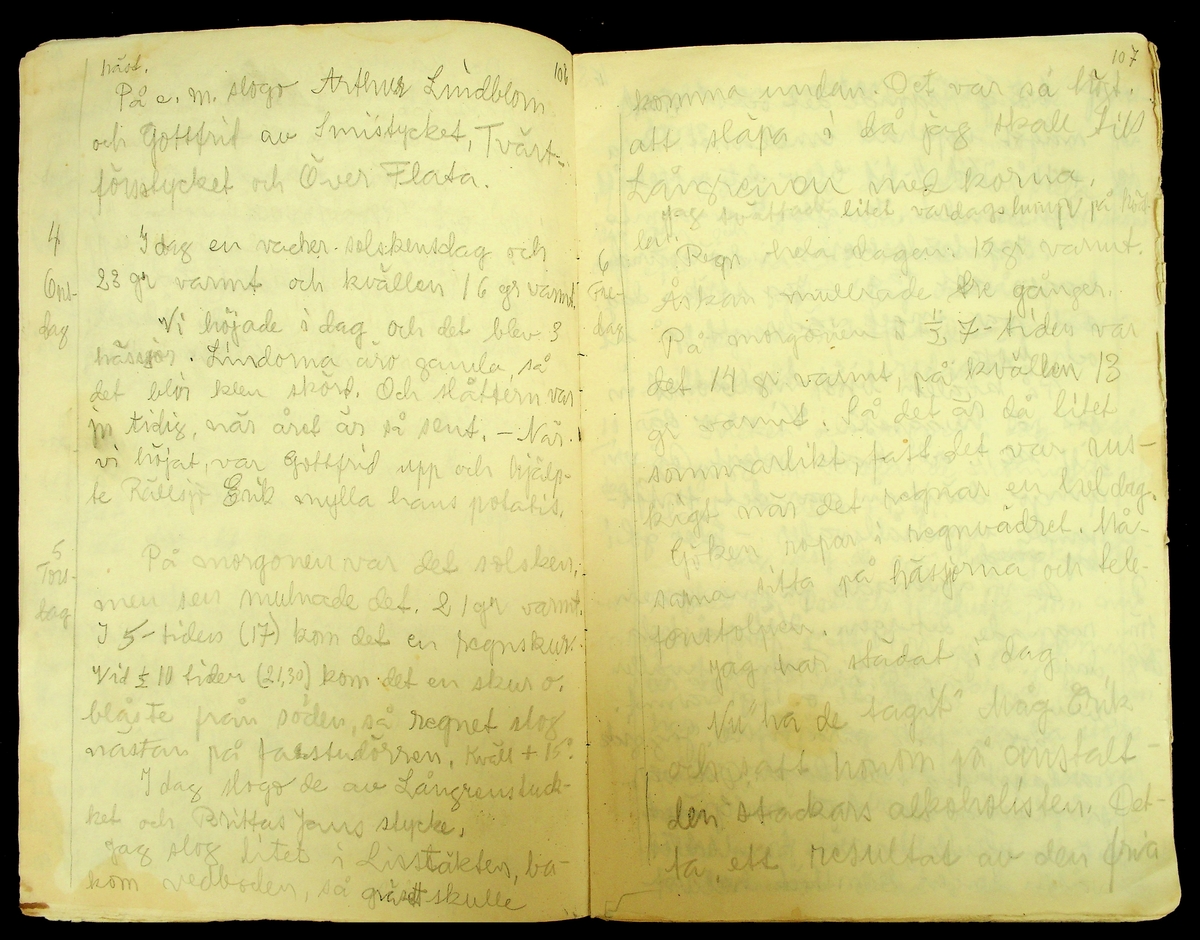 106
häst.
På e. m. slogo Arthur Lindblom
och Gottfrid av Smistycket, Tvärt-
försstycket och Över Flata.
4
Ons-
dag
I dag en vacker solskensdag och
23 gr varmt och kvällen 16 gr varmt.
Vi höjade i dag och det blev 3
hässjor. Lindorna äro gamla, så
det blir klen skörd. Och slåttern var
ju tidig, när året är så sent. – När
vi höjat, var Gottfrid upp och hjälp-
te Källsjö Erik mylla hans potatis.
5
Tors-
dag
På morgonen var det solsken,
men sen mulnade det. 21 gr varmt.
I 5-tiden (17) kom det en regnskur.
Vid ½ 10 tiden (21,30) kom det en skur o.
blåste från söden, så regnet slog
nästan på farstudörren. Kväll + 15°
I dag slogo de av Långrenstyck-
ket och Brittas Jans stycke.
Jag slog litet i Lisstäkten, ba-
kom vedboden, så gräset skulle
107
komma undan. Det var så högt.
att släpa i då jag skall till
Långrevan med korna.
Jag tvättade litet vardagslump på kväl-
len.
6
Fre-
dag
Regn hela dagen. 15 gr varmt.
Åskan mullrade tre gånger.
På morgonen i ½ 7-tiden var
det 14 gr varmt, på kvällen 13
gr varmt. Så det är då litet
sommarlikt, fatt det var rus-
kigt när det regnar en hel dag.
Göken ropar i regnvädret. Må-
sarna sitta på häsjorna och tele-
fonstolpen.
Jag har städat i dag
Nu "ha de tagit" Måg Erik
och satt honom på anstalt –
den stackars alkoholisten. Det-
ta, ett resultat av den fria